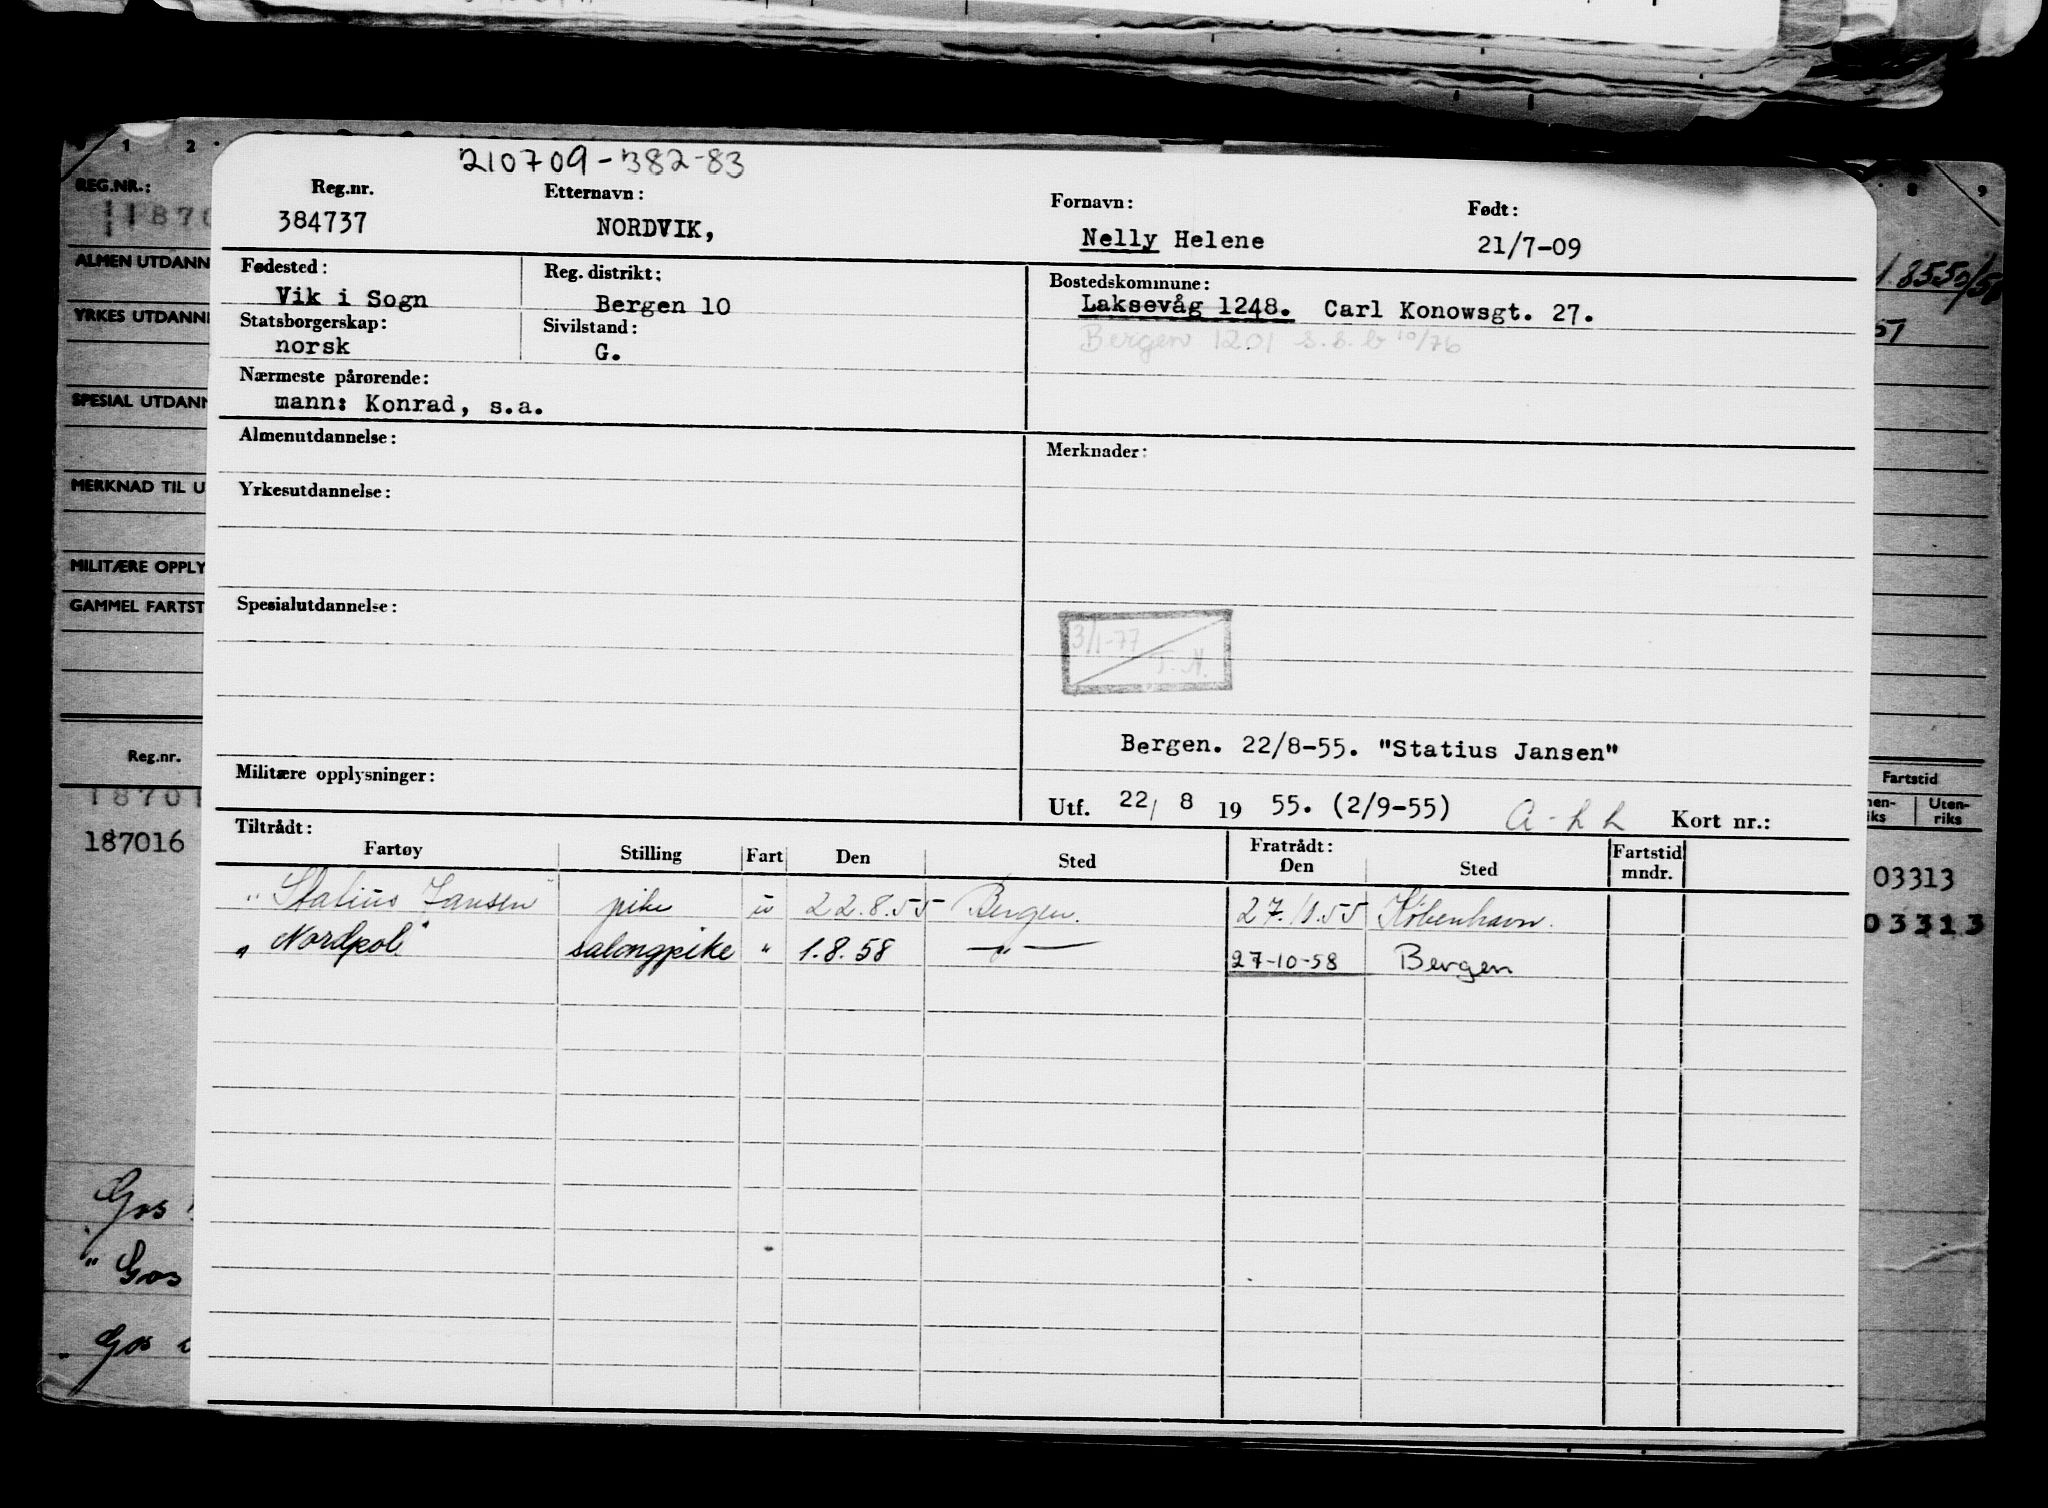 210709-38283
Reg.nr. Etternavn: Fornavn: Født:
384737 NORDVIK, Nelly Helene 21/7-09
Fødested: Reg. distrikt: Bostedskommune:
Vik i Sogn Bergen 10 Laksevåg 1248. Carl Konowsgt. 27.
Statsborgerskap: Sivilstand: Bergen 1201 s.s.b 10/76
norsk G.
Nærmeste pårørende:
mann: Konrad, s.a.
Almenutdannelse: Merknader:
Yrkesutdannelse:
Spesialutdannelse:
3/1-77
T.N.
Bergen. 22/8-55. "Statius Jansen"
Militære opplysninger:
Utf. 22/ 8 19 55. (2/9-55) Kort nr.:
Tiltrådt: Fratrådt:
Fartøy Stilling Fart Den Sted Den Sted Fartstid mndr.
"Statius Jansen pike u 22.8.55 Bergen. København.
"Nordpol" salongpike " 1.8.58 —"— 27-10-58 Bergen
1 2 8 9
REG.NR.:
ALMEN UTDANN
YRKES UTDANN
SPESIAL UTDANN
MERKNAD TIL U
MILITÆRE OPPLY
GAMMEL FARTST
Reg.nr.
18701
187016
Gos
" Gos
" Gos
51
Fartstid
Uten-
riks
03313
03313